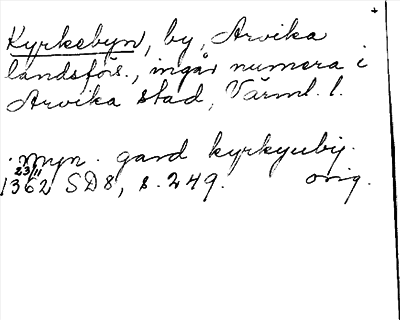 Kyrkebyn, by, Arvika
landsförs., ingår numera i
Arvika stad, Värml. l.
. myn . gard kyrkyuby.
23/11
1362 SD8, s. 249. orig.